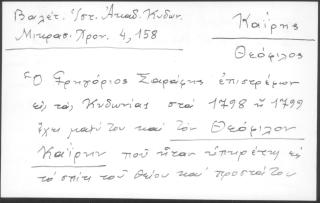 Βαλέτ. Ἱστ. Ἀκαδ. Κυδων.
Μικρασ. Χρον. 4, 158
Καΐρης
Θεόφιλος
Ὁ Γρηγόριος Σαράφης ἐπιστρέφων
εἰς τὰς Κυδωνίας στὰ 1798 ἢ 1799
ἔχει μαζί του καὶ τὸν Θεόφιλον
Καΐρην ποὺ ἦταν ὑπηρέτης εἰς
τὸ σπίτι τοῦ θείου καὶ προστάτου